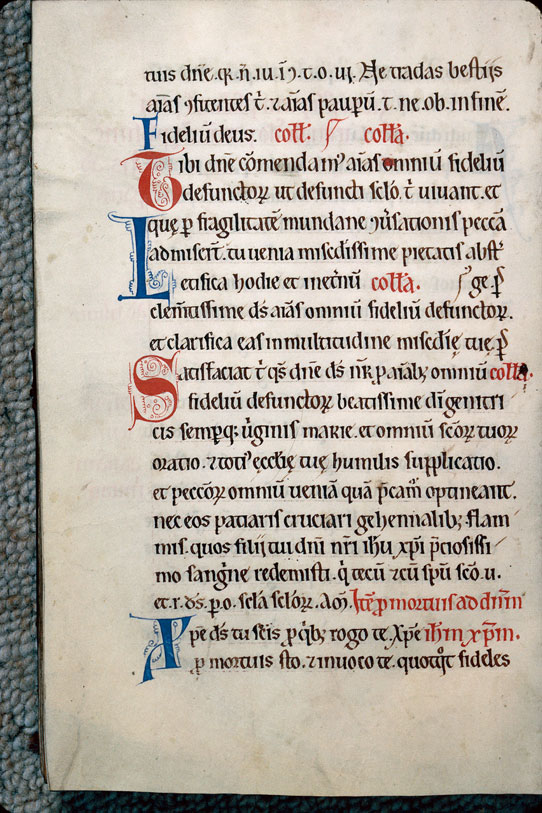 tuis dn̄e. qͥ. n̄. iu. iı̄ ꝯ. t. o. uı. Ne tradas bestijs
aı̄as ꝯfitentes t̄. ⁊ aı̄as paupeꝝ. t. ne. ob. in finē.
Fideliū deus. coll̄. coll̄a.
Tibi dn̄e cōmendamꝰ aı̄as omniū fideliū
defunctoꝝ ut defuncti sc̄lo. t̄ uiuant. et
quę ꝑ fragilitatē mundane ꝯuersationis peccā
admiserꞇ̄. tu uenia misc̄dissime pietatis absꞇ̄
Letifica hodie et inet̄nū coll̄a. ge ꝑ
clem̄tissime ds̄ aı̄as omniū fideliū defunctoꝝ.
et clarifica eas in multitudine misc̄dię tuę ꝑ
Satisfaciat t̄ qs̄ dn̄e ds̄ nr̄ ꝓ aı̄abꝫ omniū coll̄a.
fideliū defunctoꝝ beatissime di genitri
cis semꝑqꝫ uͥginis marie. et omniū sc̄oꝝ tuoꝝ
oratio. ⁊ totiꝰ ęcc̄lię tuę humilis supplicatio.
et peccōꝝ omniū ueniā quā p̄cam̄ optineant.
nec eos patiaris cruciari gehennalibꝫ flam
mis. quos filij tui dn̄i nr̄i ih̄u xp̄i p̄ciosissi
mo sangͥne redemisti. qͥ tecū ⁊ cū sp̄u sc̄o. u.
et. r. ds̄. p. o. sc̄la sc̄loꝝ. Am̄. Itē ꝓ mortuis ad dn̄m
Ape ds̄ tu scis ꝓ qͥbꝫ rogo te xp̄e ih̄m xp̄m.
ꝓ mortuis sto. ⁊ inuoco te. quotqͦt fideles